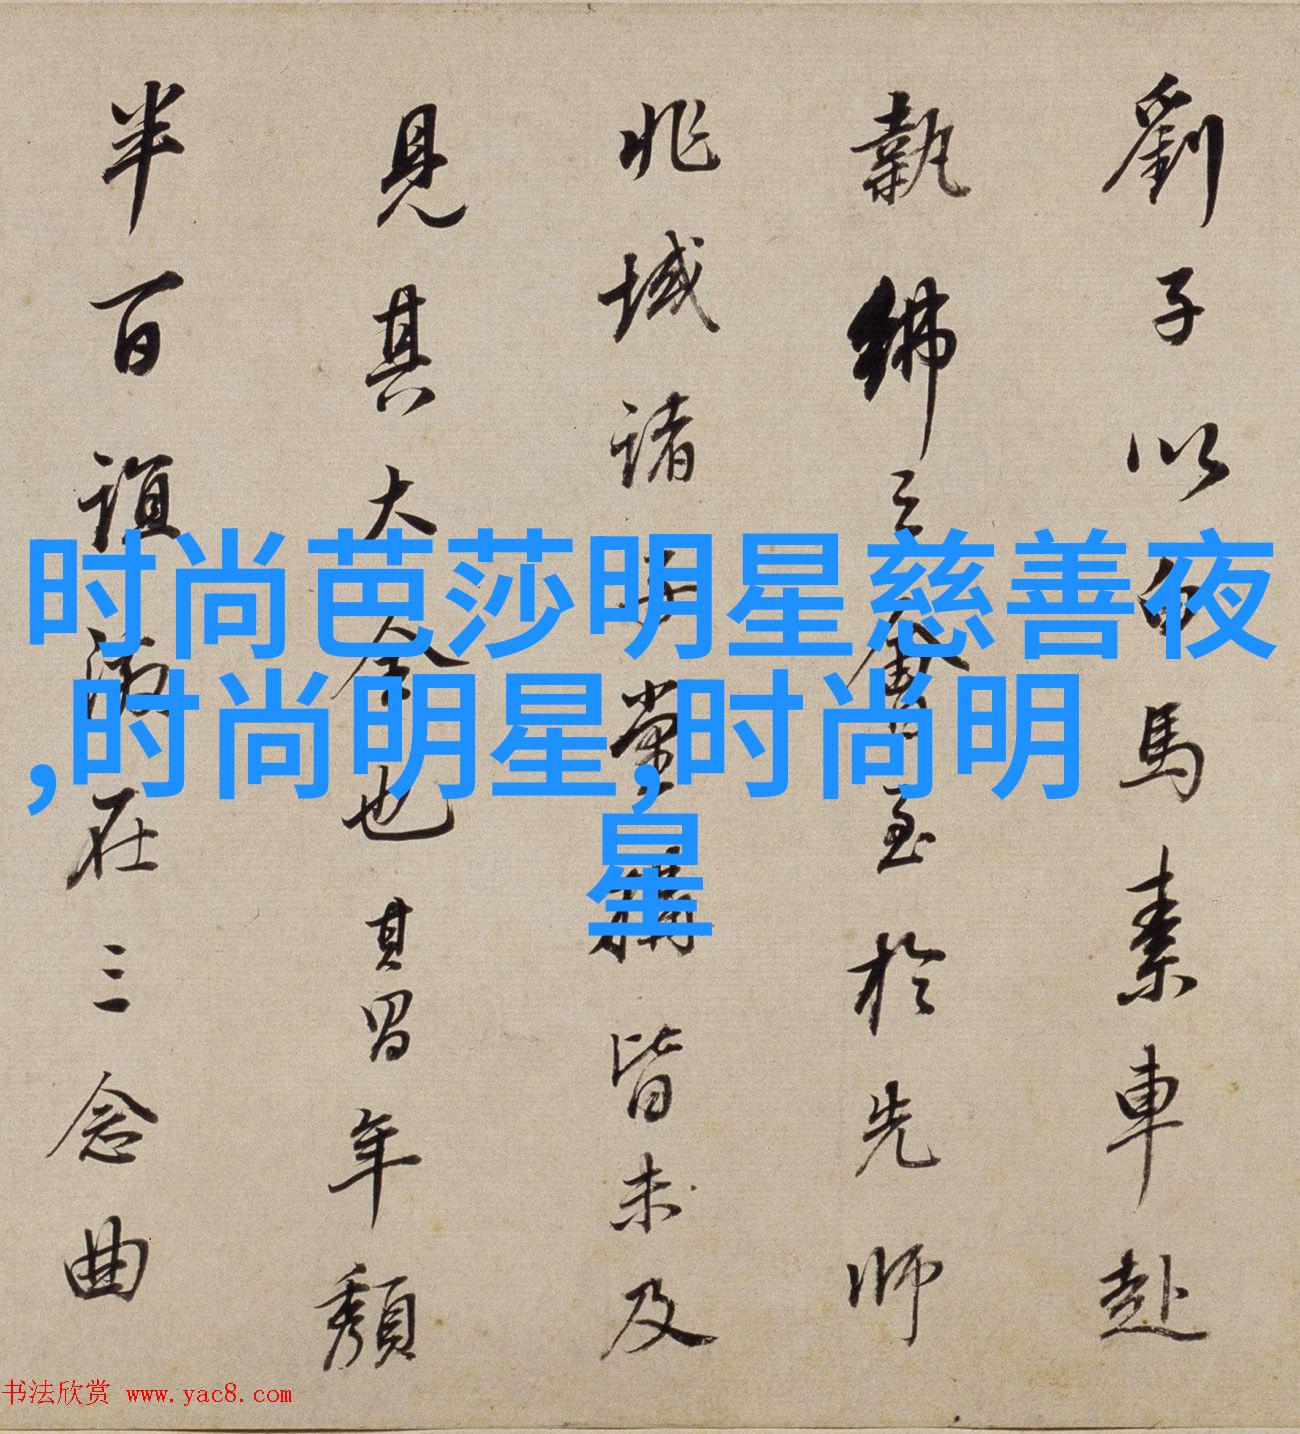 劉子以白馬素車赴
執紼之會至於先師
兆域諸子嘗構皆未及
見其大全也其習年頹
半百誼激在三念曲
时尚芭莎明星慈善夜
,时尚明星,时尚明
星
书法欣赏 www.yac8.com